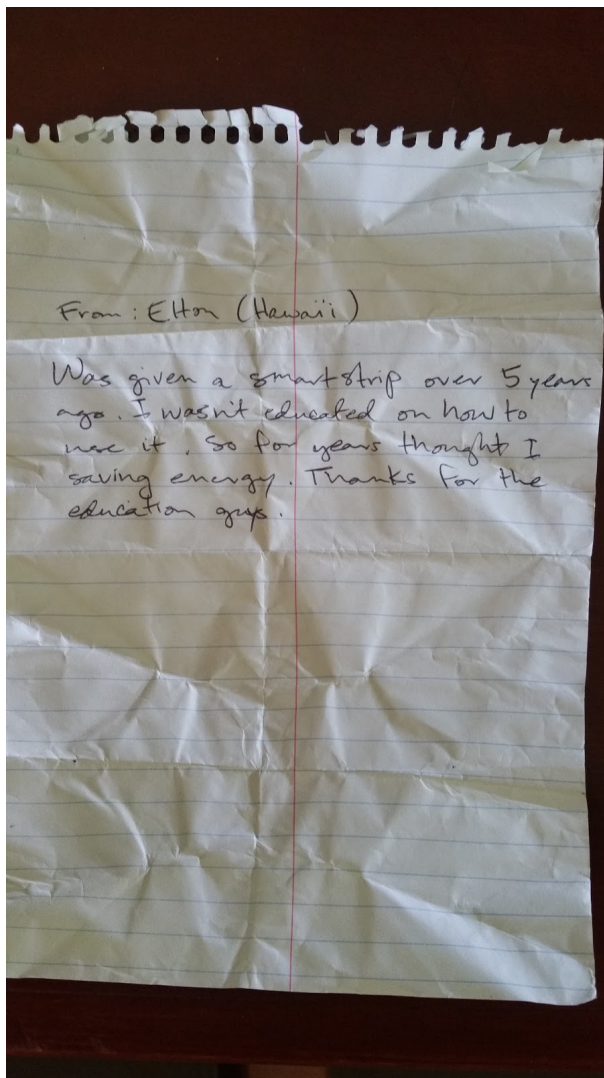 From: Elton (Hawai'i)
Was given a smart strip over 5 years
ago. I wasn't educated on how to
use it. So for years thought I
saving energy. Thanks for the
education guys.